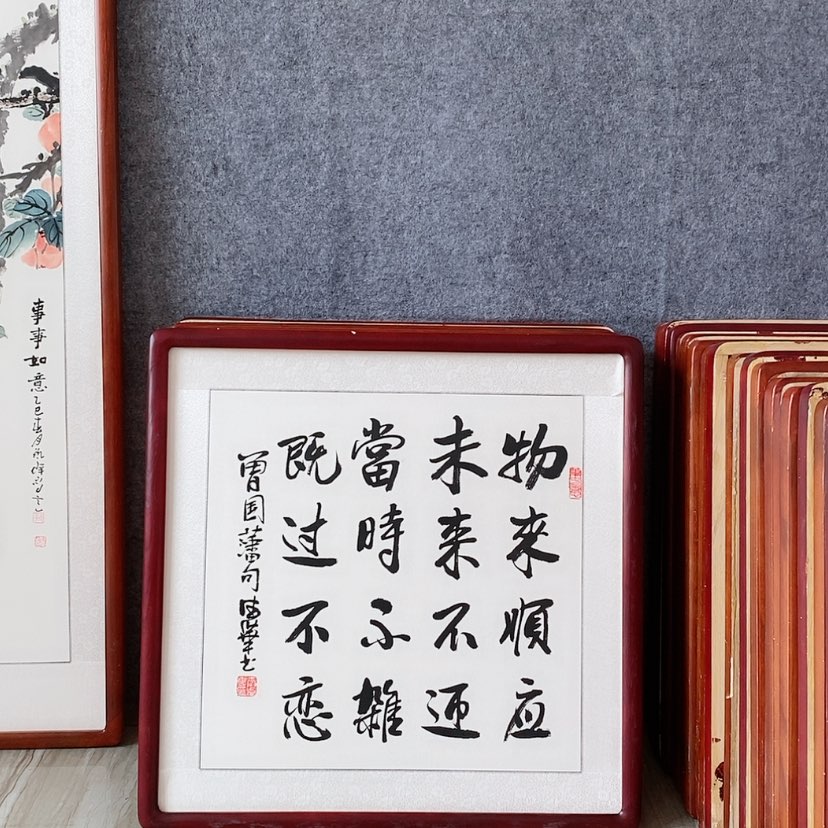 物來順应
未来不迎
當時不雜
既过不恋
曾国藩句
事事如意
乙巳